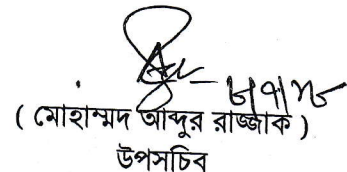 ( মোহাম্মদ আব্দুর রাজ্জাক )
উপসচিব